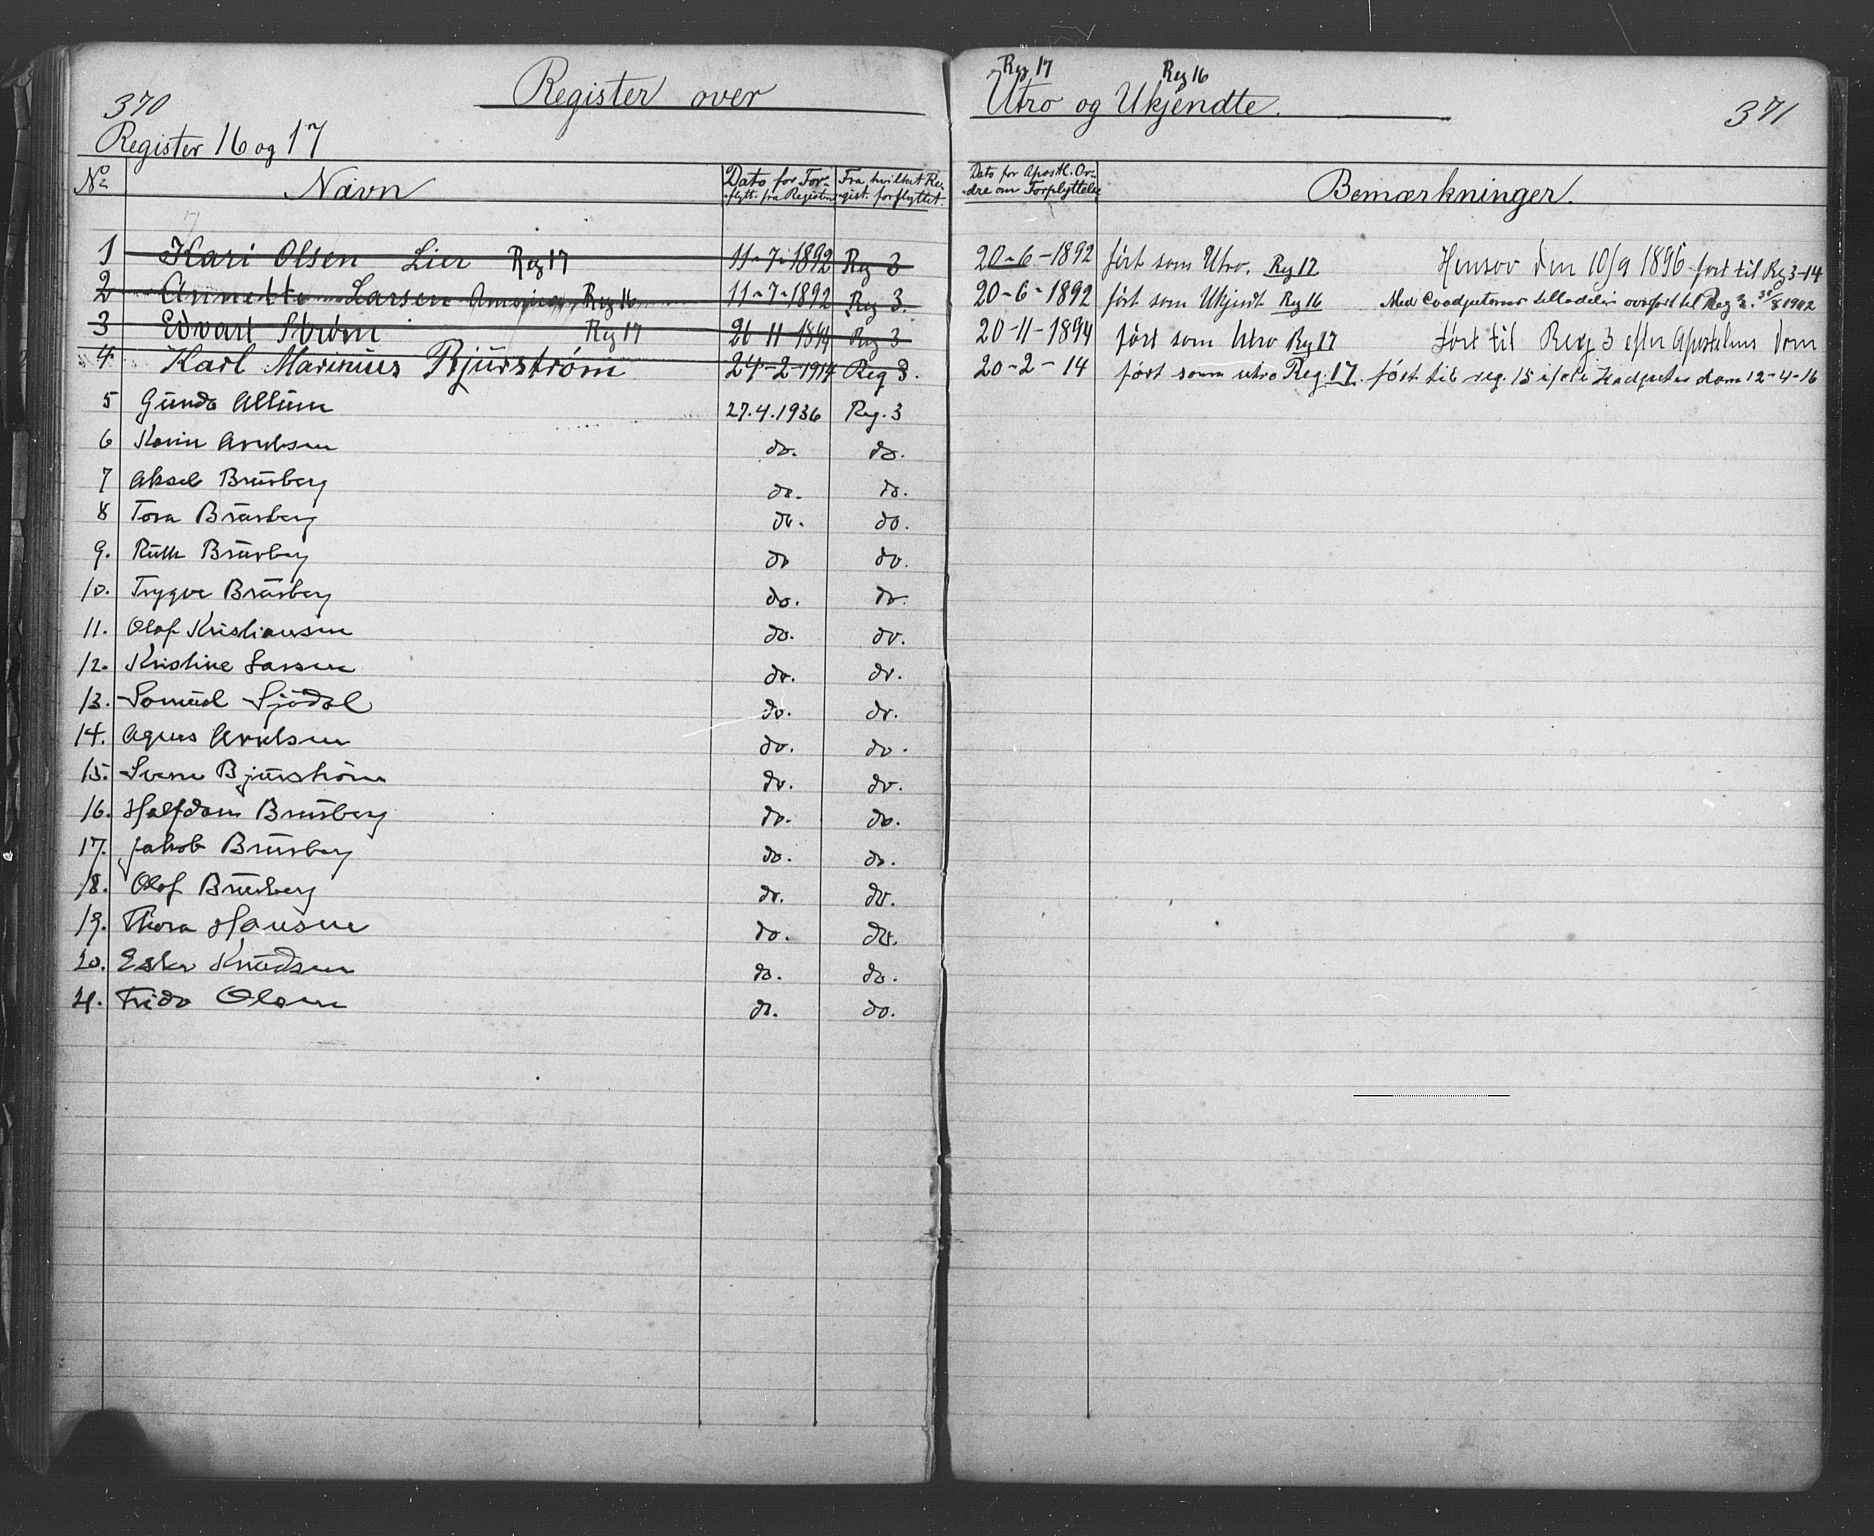 370
Register over
Register 16 og 17
No
Navn
Dato for For-
flytt. fra Registr.
Fra hvilket Re-
gist. forflyttet.
Reg 17 Reg 16
Utro og Ukjendte.
371
Dato for Apostl. Or-
dre om Forflyttelse
Bemærkninger.
1 Kari Olsen Lier Reg 17 11-7-1892 Reg 3 20-6-1892 ført som Utro. Reg 17 Hensov den 10/9 1896 ført til Reg 3-14
2 Annette Larsen Reg 16 11-7-1892 Reg 3. 20-6-1892 ført som Ukjendt Reg 16 Med tilladelse overført til Reg 3. 30/8 1902
3 Edvart Strøm Reg 17 20-11-1894 Reg 3 20-11-1894 ført som Utro Reg 17 ført til Reg 3 efter Apostelens Dom
4 Karl Marinius Bjurstrøm 24-2-1914 Reg 3. 20-2-14 ført som utro Reg. 17. ført til reg. 15 dom 12-4-16
5 Gunda Allum 27.4.1936 Reg. 3
6 Karin Arnesen do. do.
7 Aksel Brusberg do. do.
8 Tora Brusberg do. do.
9. Ruth Brusberg do do.
10. Trygve Brusberg do. do.
11. Olaf Kristiansen do. do.
12. Kristine Larsen do. do.
13. Samuel Sjødal do. do.
14. Agnes Arnesen do. do.
15. Bjurstrøm do. do.
16. Halfdan Brusberg do. do.
17. Jakob Brusberg do. do.
18. Olaf Brusberg do. do.
19. Thora Hansen do. do.
20. Ester Knudsen do. do.
21. Frida Olsen do. do.